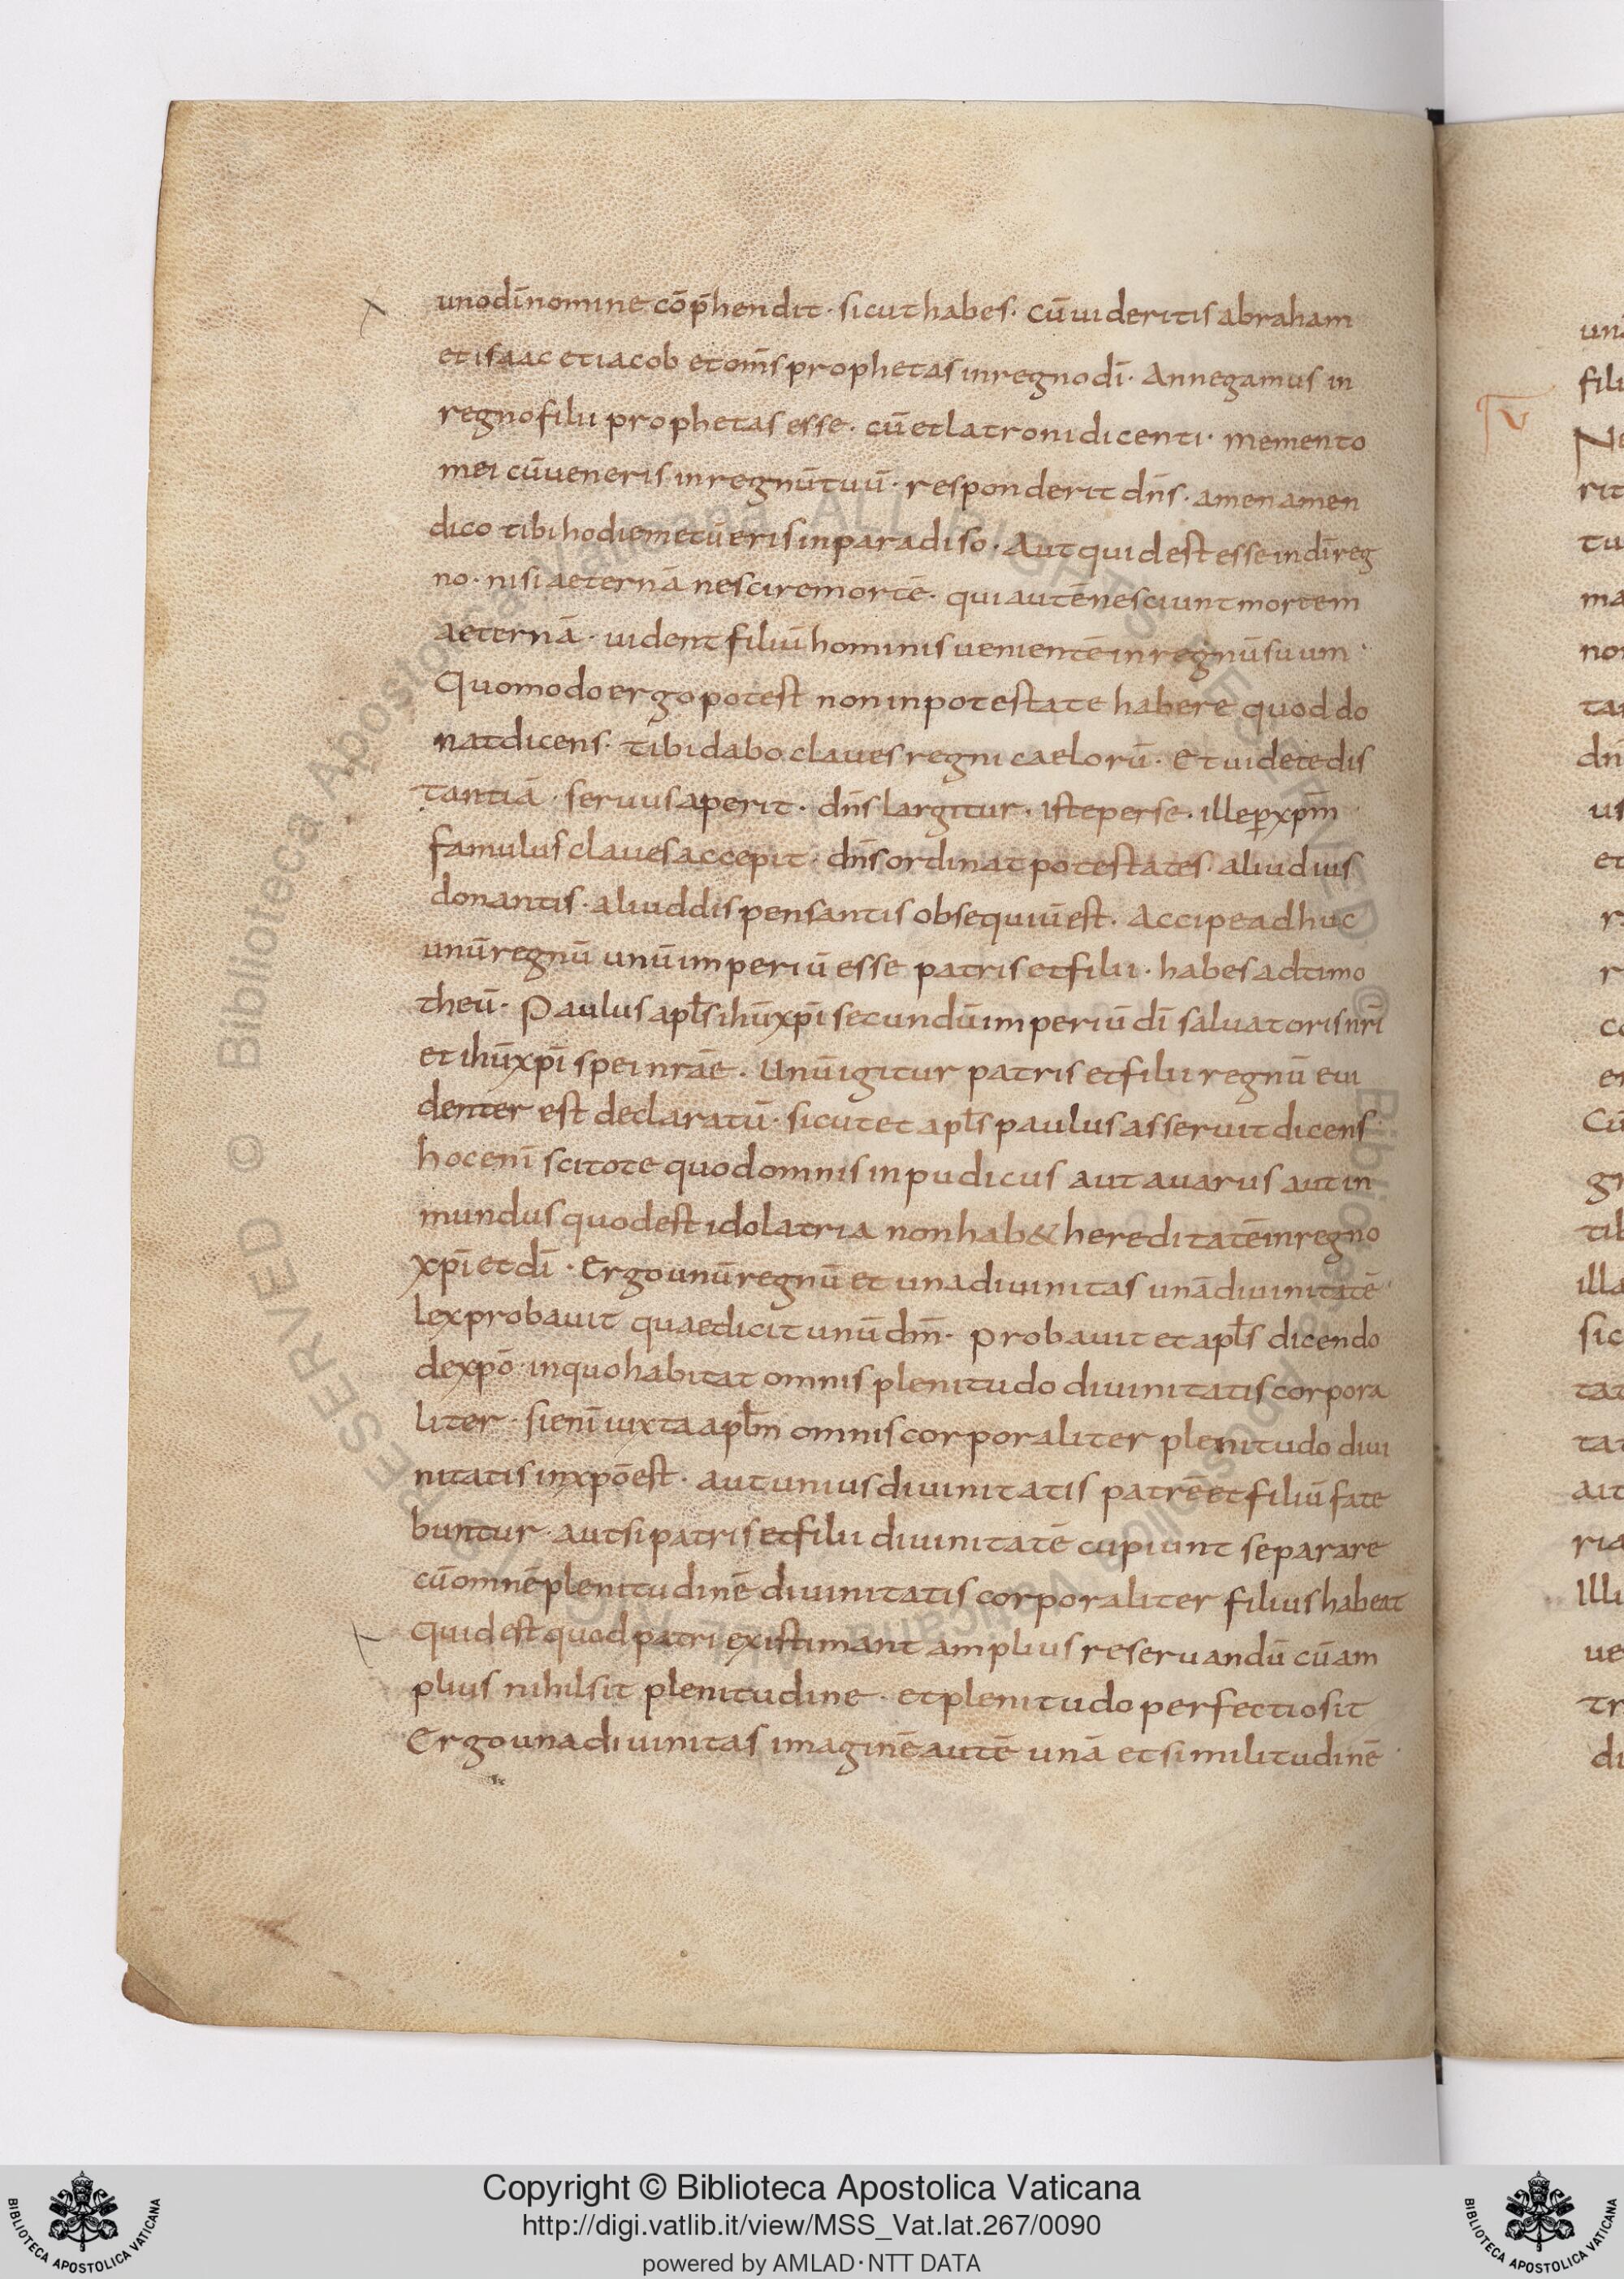 uno dī nomine cōp̄hendit · sicut habes · cū uideritis abraham
et isaac et iacob et om̄s prophetas in regno dī · An negamus in
regno filii prophetas esse · cū et latroni dicenti · memento
mei cū ueneris in regnū tuū · responderit dn̄s · amen amen
dico tibi hodie mecū eris in paradiso · Aut quid est esse in dī reg
no · nisi aeternā nescire mortē · qui autē nesciunt mortem
aeternā · uident filiū hominis uenientē in regnū suum ·
Quomodo ergo potest non in potestate habere quod do
nat dicens · tibi dabo claues regni caelorū · Et uidete dis
tantiā · seruus aperit · dn̄s largitur · iste per se · ille ꝑ xpm̄
famulus claues accepit · dn̄s ordinat potestates · aliud ius
donantis · aliud dispensantis obsequiū est · Accipe adhuc
unū regnū unū imperiū esse patris et filii · habes ad timo
theū · Paulus apl̄s ihū xpī secundū imperiū dī saluatoris nr̄i
et ihū xpī spei nrāe · Unū igitur patris et filii regnū eui
denter est declaratū · sicut et apl̄s paulus asseruit dicens
hoc enī scitote quod omnis inpudicus aut auarus aut in
mundus quod est idolatria non hab& hereditatē in regno
xpī et dī · Ergo unū regnū et una diuinitas unā diuinitatē ·
lex probauit quae dicit unū dm̄ · probauit et apl̄s dicendo
de xpō · in quo habitat omnis plenitudo diuinitatis corpora
liter · si enī iuxta apl̄m omnis corporaliter plenitudo diui
nitatis in xpō est · aut unius diuinitatis patrē et filiū fate
buntur · aut si patris et filii diuinitatē cupiunt separare
cū omnē plenitudinē diuinitatis corporaliter filius habeat
Quid est quod patri existimant amplius reseruandū cū am
plius nihil sit plenitudine · et plenitudo perfectio sit
Ergo una diuinitas imaginē autē unā et similitudinē ·
Copyright © Biblioteca Apostolica Vaticana
http://digi.vatlib.it/view/MSS_Vat.lat.267/0090
powered by AMLAD·NTT DATA